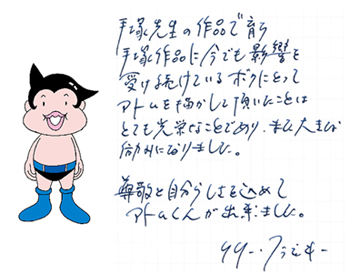 手塚先生の作品で育ち
手塚作品に今でも影響を
受け続けているボクにとって
アトムを描かして頂いたことは
とても光栄なことであり、また大きな
励みになりました。
尊敬と自分らしさを込めて
アトムくんが出来ました。
リリー・フランキー